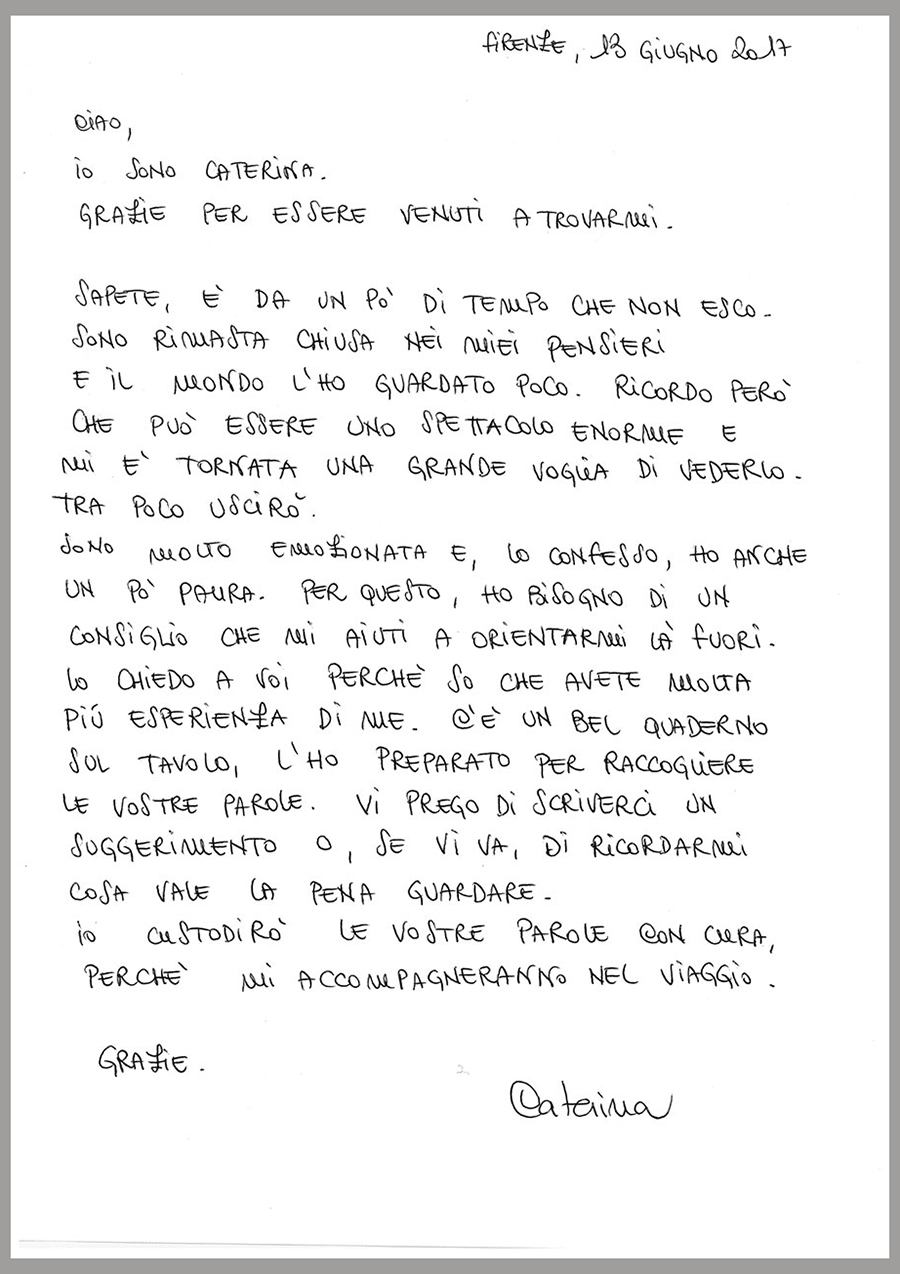 FIRENZE, 13 GIUGNO 2017
CIAO,
IO SONO CATERINA.
GRAZIE PER ESSERE VENUTI A TROVARMI.
SAPETE, È DA UN PO' DI TEMPO CHE NON ESCO.
SONO RIMASTA CHIUSA NEI MIEI PENSIERI
E IL MONDO L'HO GUARDATO POCO. RICORDO PERÒ
CHE PUÒ ESSERE UNO SPETTACOLO ENORME E
MI E' TORNATA UNA GRANDE VOGLIA DI VEDERLO.
TRA POCO USCIRÒ.
SONO MOLTO EMOZIONATA E, LO CONFESSO, HO ANCHE
UN PÒ PAURA. PER QUESTO, HO BISOGNO DI UN
CONSIGLIO CHE MI AIUTI A ORIENTARMI LÀ FUORI.
LO CHIEDO A VOI PERCHÈ SO CHE AVETE MOLTA
PIÚ ESPERIENZA DI ME. C'È UN BEL QUADERNO
SUL TAVOLO, L'HO PREPARATO PER RACCOGLIERE
LE VOSTRE PAROLE. VI PREGO DI SCRIVERCI UN
SUGGERIMENTO O, SE VI VA, DI RICORDARMI
COSA VALE LA PENA GUARDARE.
IO CUSTODIRÒ LE VOSTRE PAROLE CON CURA,
PERCHÈ MI ACCOMPAGNERANNO NEL VIAGGIO.
GRAZIE.
Caterina